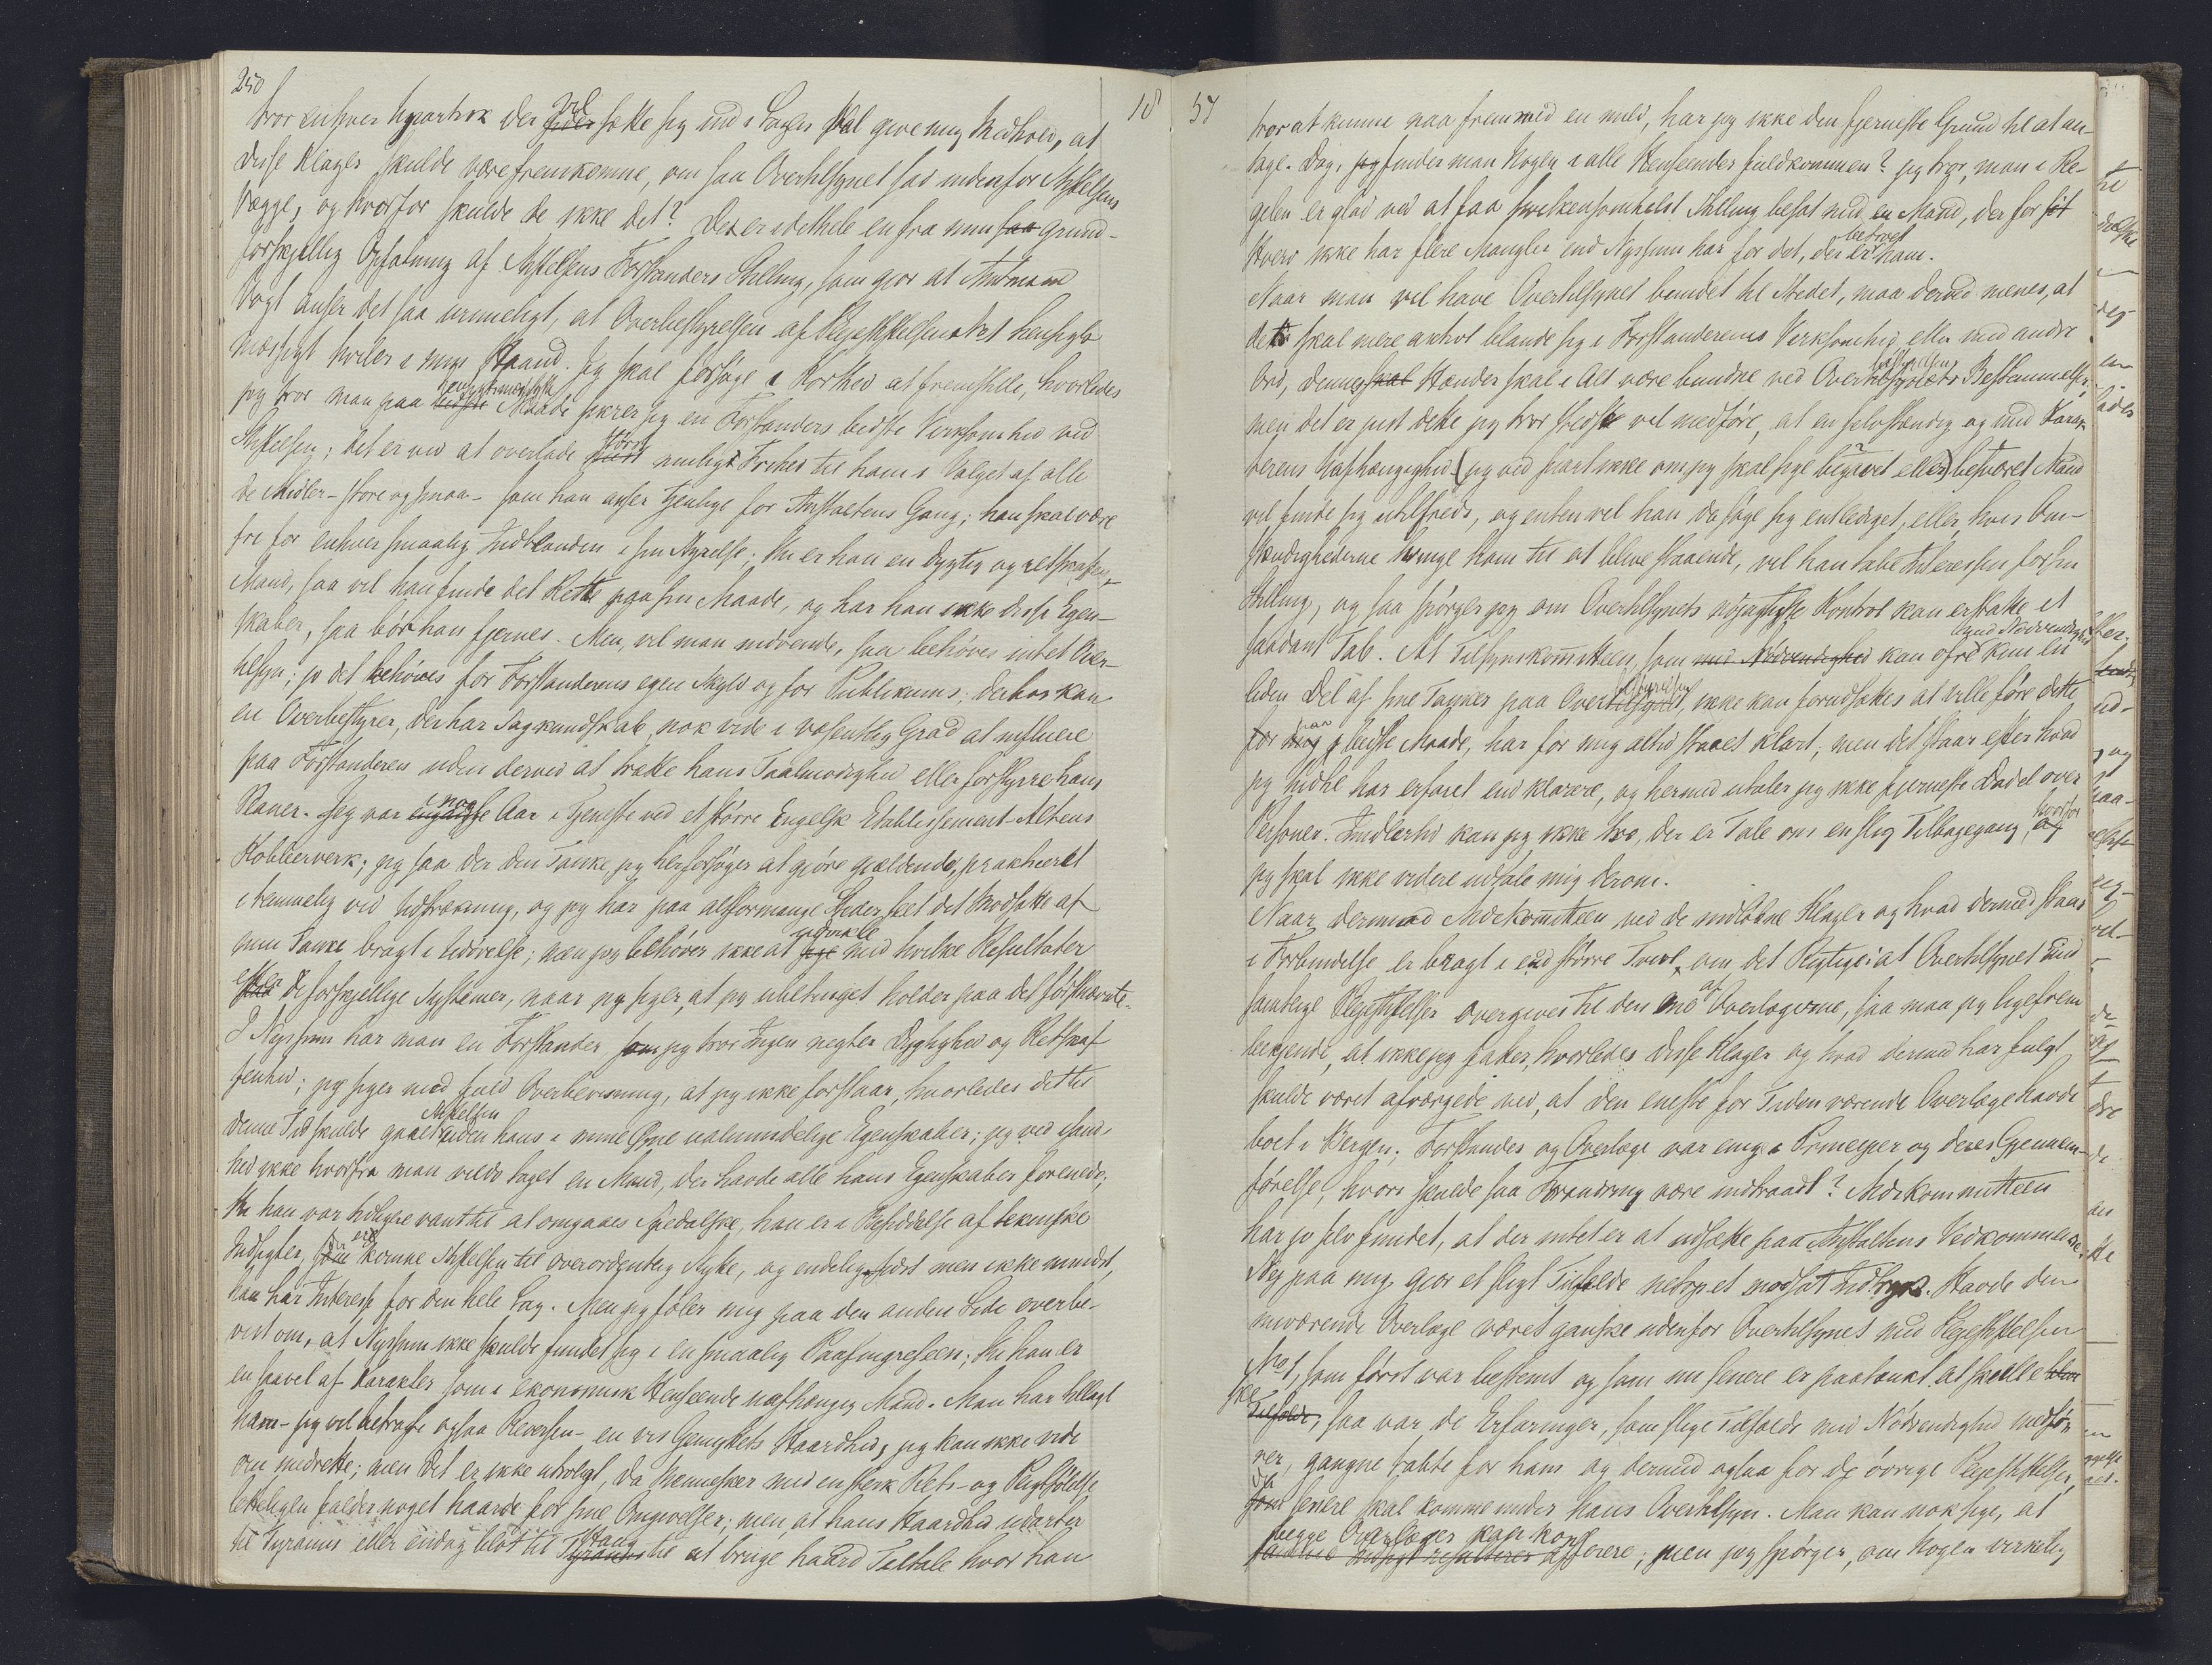 250
tror enhver Upartisk der vil sætte sig ind i Sagen skal give mig Medhold, at
disse Klager skulde være fremkomne, om saa Overtilsynet sad indenfor Stiftelsens
Vægge, og hvorfor skulde de ikke det? Det er idethele en fra min grund-
forskjellig Opfatning af Stiftelsens Forstanders Stilling, som gjør at Amtmand
Vogt anser det saa urimeligt, at Overbestyrelsen af Plejestiftelsen
hviler i min Haand. Jeg skal forsøge i Korthed at fremstille, hvorledes
jeg tror man paa hensigtsmæssigste Maade sikrer sig en Forstanders bedste Virksomhed ved
Stiftelsen; det er ved at overlade størst muligt Frihed til ham i Valget af alle
de Midler - store og smaa - som han anser tjenlige for Anstaltens Gang; han skal være
fri for enhver smaalig Indblanden i sin Styrelse. Er han en dygtig og retskaffen
Mand, saa vil han finde det Rette paa sin Maade, og har han ikke disse Egen-
skaber, saa bør han fjernes. Men, vil man indvende, saa behøves intet Over-
tilsyn; jo det behøves for Forstanderens egen Skyld og for Publikums; derhos kan
en Overbestyrer, der har Sagkundskab, nok vide i væsentlig Grad at influere
paa Forstanderen uden derved at trætte hans Taalmodighed eller forstyrre hans
Planer. Jeg var nogle Aar i Tjeneste ved et større Engelsk Etablissement - Altens
Kobberverk; jeg saa der den Tanke, jeg her forsøger at gjøre gjældende, praktiseret
i temmelig vid Udstrækning, og jeg har paa altfor mange Steder seet det Modsatte af
min Tanke bragt i Udøvelse; men jeg behøver ikke at udvikle med hvilke Resultater
efter de forskjellige Systemer, naar jeg siger, at jeg ubetinget holder paa det førstnævnte.
I Nyssum har man en Forstander som jeg tror Ingen negter Dygtighed og Retskaf-
fenhed; jeg siger med fuld Overbevisning, at jeg ikke forstaar, hvorledes det til
denne Tid skulde gaaet Stiftelsen uden hans i mine Øine ualmindelige Egenskaber; jeg ved isand-
hed ikke hvorfra man vilde taget en Mand, der havde alle hans Egenskaber forenede;
thi han var tidligere vant til at omgaaes Spedalske, han er i Besiddelse af tekniske
Indsigter, der ere komne Stiftelsen til overordentlig Nytte, og endelig sidst men ikke mindst,
han har Interesse for den hele Sag. Men jeg føler mig paa den anden Side overbe-
vist om, at Nyssum ikke skulde fundet sig i en smaalig Paafingreseen; thi han er
en saavel af Karakter som i økonomisk Henseende uafhængig Mand. Man har tillagt
ham - jeg vil betragte ogsaa Reversen - en vis Gemyttets Haardhed, jeg kan ikke vide
om medrette; men det er ikke utroligt, da Mennesker med en sterk Rets- og Pligtfølelse
letteligen falder noget haarde for sine Omgivelser; men at hans Haardhed udarter
til Tyranni eller endog blot til Hang til at bruge haard Tiltale hvor han
18
57
tror at kunne naa frem med en mild, har jeg ikke den fjerneste Grund til at an-
tage. Dog, finder man Nogen i alle Henseender fuldkommen? jeg tror, man i Re-
gelen er glad ved at faa hvilkensomhelst Stilling besat med en Mand, der for sit
Hverv ikke har flere Mangler end Nyssum har for det, der er betroet ham.
Naar man vil have Overtilsynet bundet til Stedet, maa derved menes, at
det skal mere aktivt blande sig i Forstanderens Virksomhed eller med andre
Ord, dennes Hænder skal i Alt være bundne ved Overbestyrelsens Bestemmelser,
men det er just dette jeg tror sidst vil medføre, at en selvstændig og med Karak-
terens Uafhængighed (jeg ved snart ikke om jeg skal sige begavet eller) besværet Mand
vil finde sig utilfreds, og enten vil han da søge sig entlediget, eller, hvis Om-
stændighederne tvinge ham til at blive staaende, vil han tabe Interessen for sin
Stilling, og saa spørger jeg om Overtilsynets nøjagtigste Kontrol kan erstatte et
saadant Tab. At Tilsynskomitteen, som med Nødvendighed kan ofre kun en
liden Del af sine Tanker paa Overbestyrelsen, ikke kan forudsættes at ville føre dette
paa bedste Maade, har for mig altid staaet klart; men det staar efter hvad
jeg hidtil har erfaret end klarere, og hermed uttaler jeg ikke fjerneste Dadel over
Personer. Imidlertid kan jeg ikke tro, der er Tale om en slig Tilbagegang, hvorfor
jeg skal ikke videre udtale mig derom.
Naar derimod Medekomitteen ved de indløbne Klager og hvad dermed staar
i Forbindelse er bragt i end større Tvivl om det Rigtige i at Overtilsynet med
samtlige Plejestiftelser overgives til den ene af Overlægerne, saa maa jeg ligefrem
bekjende, at ikke jeg fatter, hvorledes disse Klager og hvad dermed har fulgt
skulde været afværgede ved, at den eneste for Tiden værende Overlæge havde
boet i Bergen; Forstander og Overlæge var enige i Principer og deres Gjennem-
førelse, hvori skulde saa Forandring være indtraadt? Medekommitteen
har jo selv fundet, at der intet er at udsætte paa Anstaltens Vedkommende.
Nej paa mig gjør et sligt Tilfælde netop et modsat Indtryk. Havde den
nuværende Overlæge været ganske udenfor Overtilsynet med Plejestiftelsen
No 1, som først var bestemt og som nu senere er paatænkt at skulle
ske, saa var de Erfaringer, som slige Tilfælde med Nødvendighed medfø-
rer, gangne tabte for ham og dermed ogsaa for de øvrige Plejestiftelser,
da senere skal komme under hans Overtilsyn. Man kan nok sige, at
begge Overlæger kan konferere; men jeg spørger, om Nogen virkelig